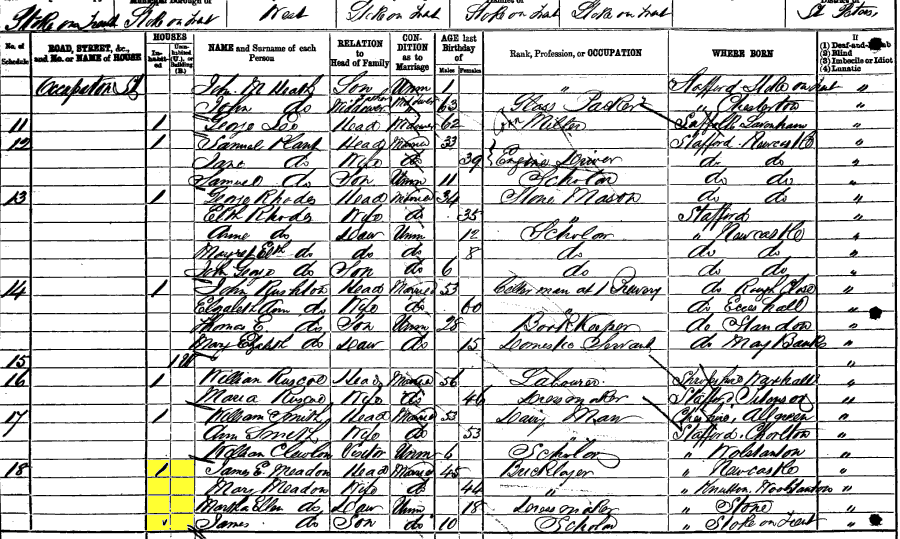 Municipal Borough of
Stoke on Trent Stoke on Trent West Stoke on Trent Stoke on Trent Stoke on Trent St Peters
No. of Schedule ROAD, STREET, &c., and No. or NAME of HOUSE HOUSES In-habit-ed Unin-habited (U.), or Building (B.) NAME and Surname of each Person RELATION to Head of Family CON-DITION as to Marriage AGE last Birthday of Males Females Rank, Profession, or OCCUPATION WHERE BORN If (1) Deaf-and-Dumb (2) Blind (3) Imbecile or Idiot (4) Lunatic
Occupation St John M Heath Son Unm 1 " Stafford Stoke on Trent "
John do Father Widower 63 Glass Packer " Chesterton "
11 1 George Lee Head Widower 62 Miller Suffolk Lavenham "
12 1 Samuel Plant Head Married 33 Stafford Newcastle "
Jane do Wife do 39 Engine Driver do do "
Samuel do Son Unm 11 Scholar do do "
13 1 George Rhodes Head Married 34 Stone Mason do do "
Elth Rhodes Wife do 35 Stafford "
Anne do Daur Unm 12 Scholar " Newcastle "
Mary Elth do do do 8 do do do "
John George do Son do 6 do do do "
14 1 John Rushton Head Married 53 Cellar man at Brewery do Rough Close "
Elizabeth Ann do Wife do 60 do Eccleshall "
Thomas E. do Son Unm 28 Book Keeper do Standon "
Mary Elizabeth do Daur do 15 Domestic Servant do May Bank "
15 1U "
16 1 William Ruscoe Head Married 56 Labourer Shropshire "
Maria Ruscoe Wife do 46 Dressmaker Stafford "
17 1 William Smith Head Married 53 Dairy Man Cheshire "
Ann Smith Wife do 53 Stafford Chorlton "
William Clawton Visitor Unm 6 Scholar " Wolstanton "
18 1 James E. Meadon Head Married 45 Bricklayer " Newcastle "
Mary Meadon Wife do 44 " " Knutton Wolstanton "
Martha Ellen do Daur Unm 18 Dressmaker " Stone "
James do Son do 10 Scholar " Stoke on Trent "